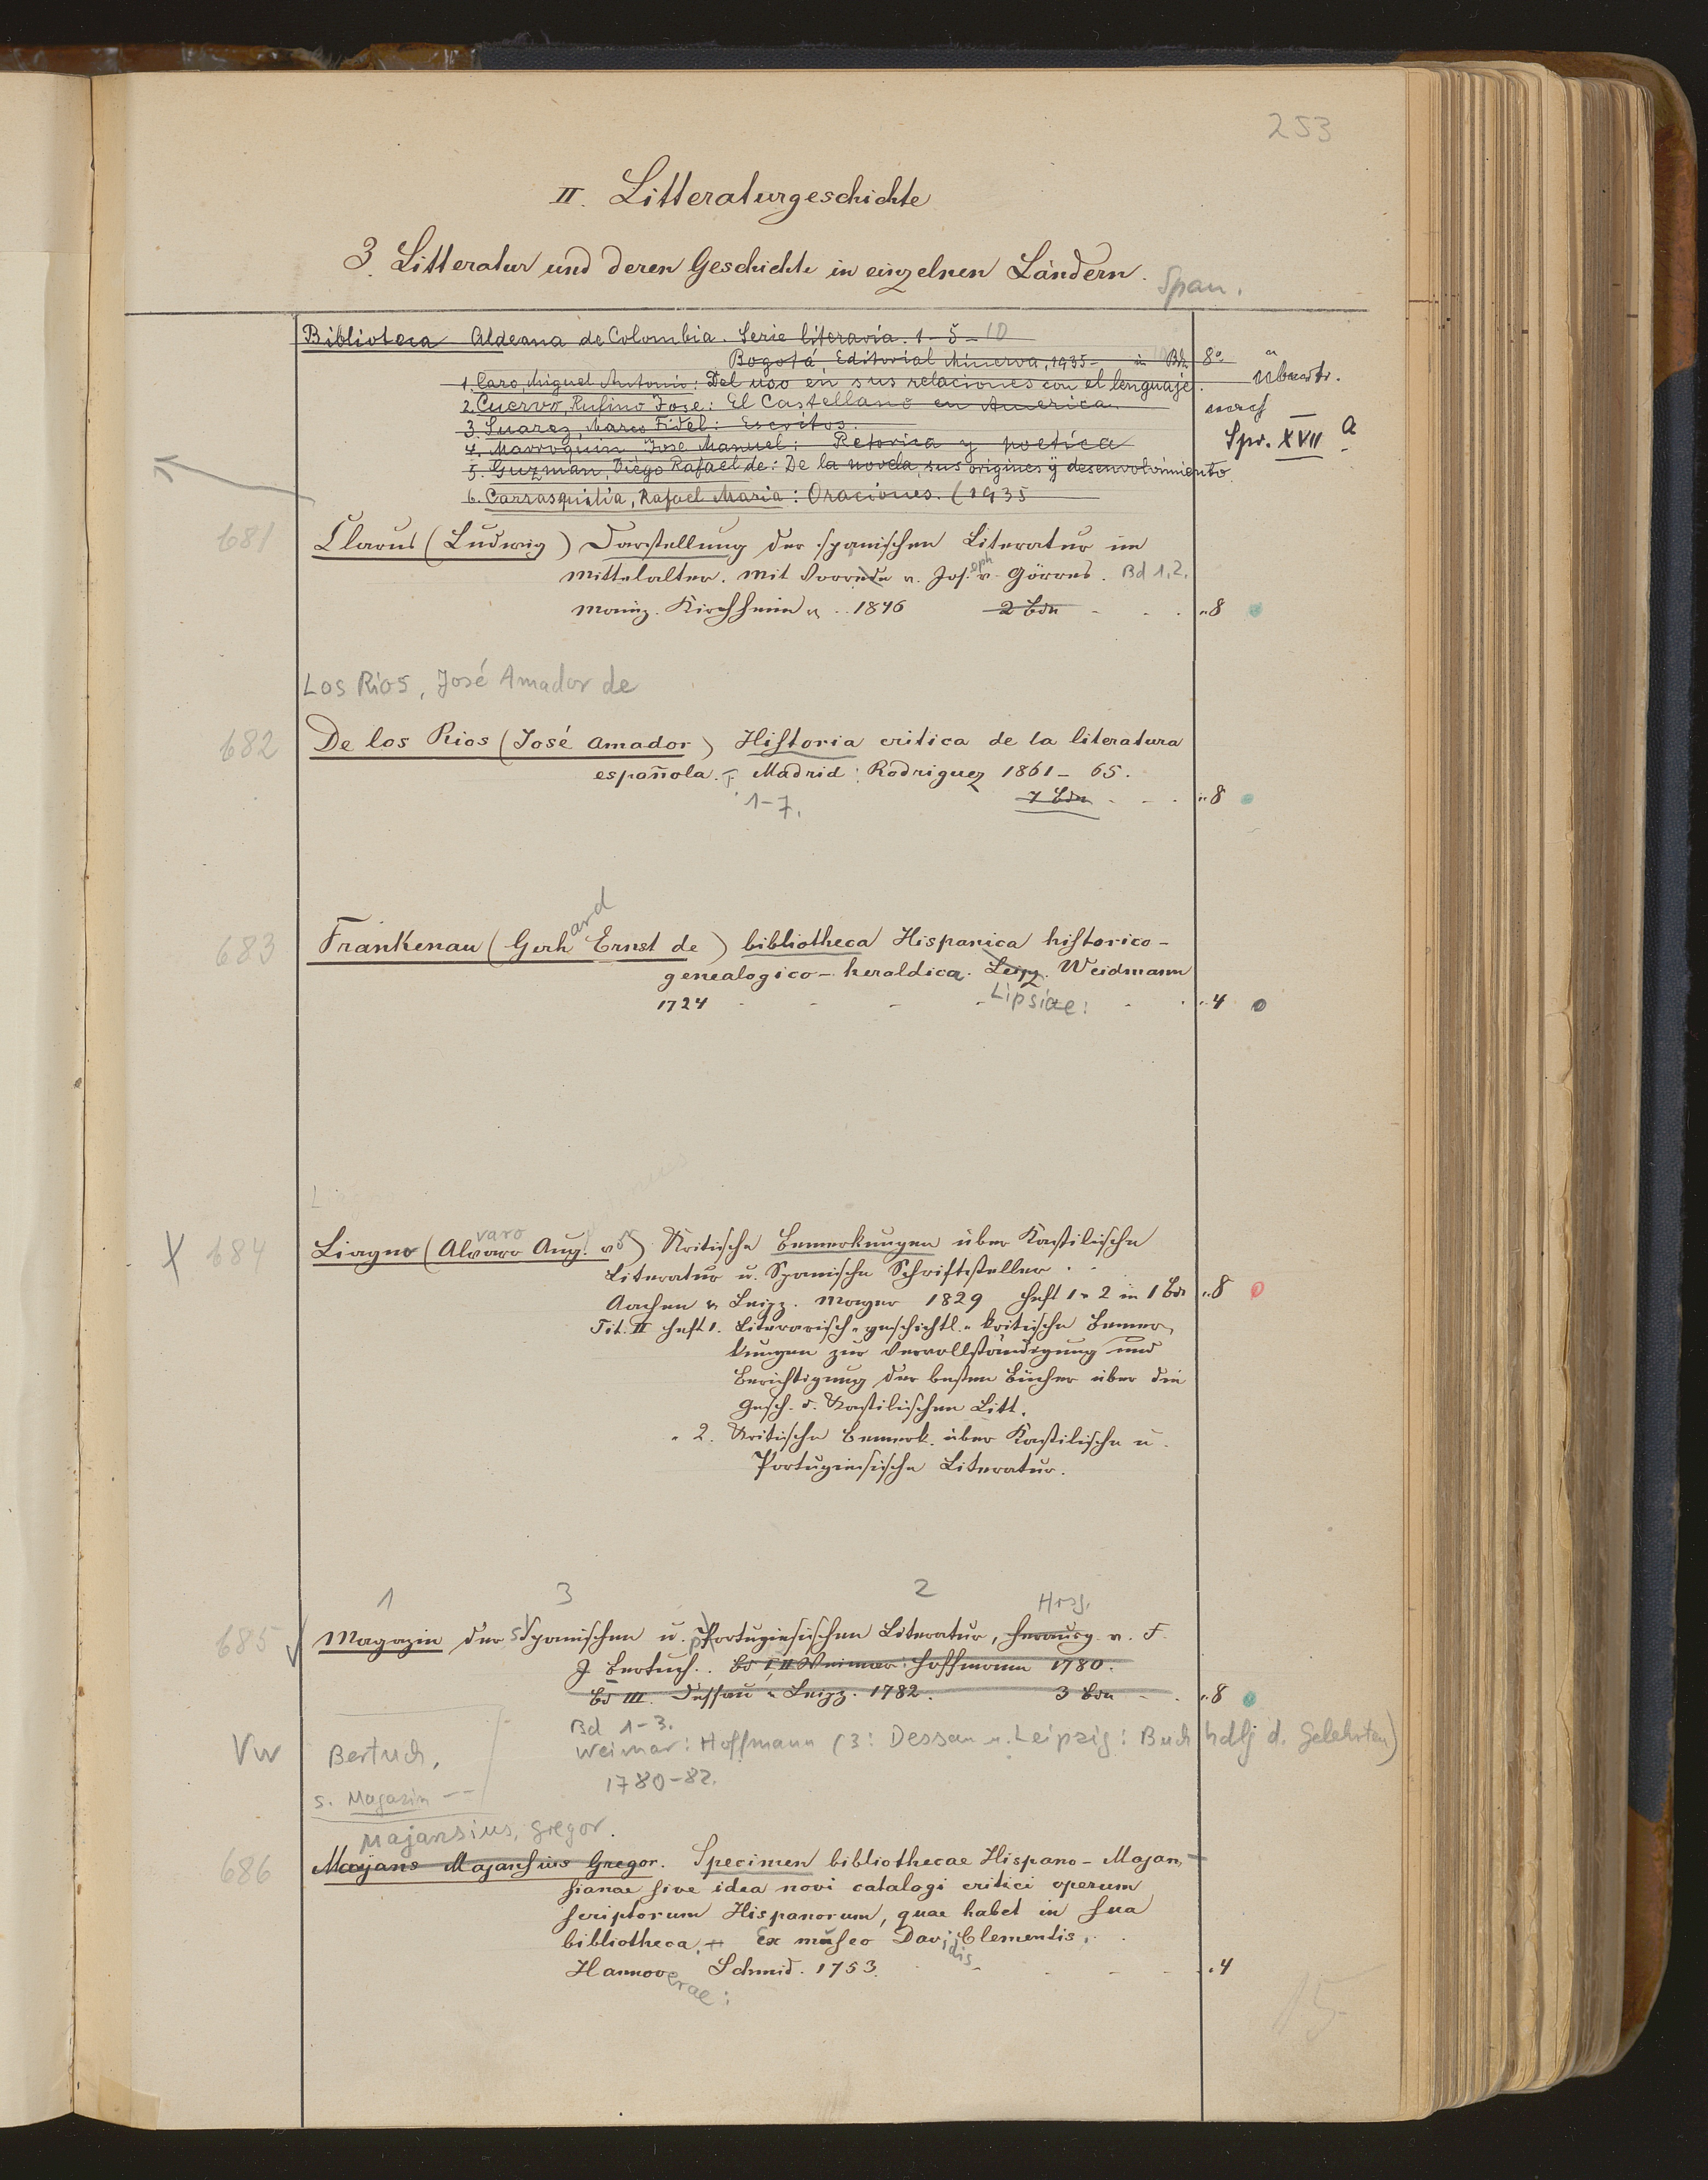 253
II. Litteraturgeschichte
3. Litteratur und deren Geschichte in einzelnen Ländern. Span.
Biblioteca Aldeana de Colombia. Serie literaria. 1-5-10
Bogotá, Editorial Minerva, 1935- in Bdn 8°
1. Caro, Miguel Antonio: Del uso en sus relaciones con el lenguaje.
2. Cuervo, Rufino Jose: El Castellano en America. nach
3. Suarez, Marco Fidel: Escritos. Spr. XVII a
4. Marroquin Jose Manuel: Retorica y poetica
5. Guzmán, Diego Rafael de: De la novela, sus origines y desenvolvimiento.
6. Carrasquilia, Rafael Maria: Oraciones. (1935
681 Clarus (Ludwig) Darstellung der spanischen Literatur im
Mittelalter. Mit Vorrede v. Joseph v. Görres. Bd 1.2.
Mainz. Kirchheim 1846 2 Bde " 8
Los Rios, José Amador de
682 De los Rios (José Amador) Historia critica de la literatura
española. T. Madrid: Rodriguez 1861-65.
1-7. 7 Bde " 8
683 Frankenau (Gerhard Ernst de) bibliotheca Hispanica historico-
genealogico-heraldica. Leipz. Weidmann
1724 Lipsiae: " 4
X 684 Liagno (Alvaro Aug. v) Kritische Bemerkungen über Kastilische
Literatur u. Spanische Schriftsteller.
Aachen u. Leipz. Mayer 1829 Heft 1 u 2 in 1 Bde " 8
Tit. II Heft 1. Literarisch-geschichtl.-kritische Bemer-
kungen zur Vervollständigung und
Berichtigung der besten Bücher über die
Gesch. d. Kastilischen Litt.
" 2. Kritische Bemerk. über Kastilische u.
Portugiesische Literatur.
1 3 2 Hrsg.
685 Magazin der Spanischen u. Portugiesischen Literatur, herausg. v. F.
J Bertuch. Bd I, II Weimar: Hoffmann 1780.
Bd III. Dessau u Leipz. 1782. 3 Bde " 8
Bd 1-3.
Vw Bertuch, Weimar: Hoffmann (3: Dessau u. Leipzig: Buchhdlg d. Gelehrten)
1780-82.
s. Magazin --
Majansius, Gregor.
686 Mayans Majansius Gregor. Specimen bibliothecae Hispano-Majan-
sianae sive idea novi catalogi critici operum
scriptorum Hispanorum, quae habet in sua
bibliotheca. Ex museo Davidis Clementis.
Hannoverae: Schmid. 1753. " 4
15